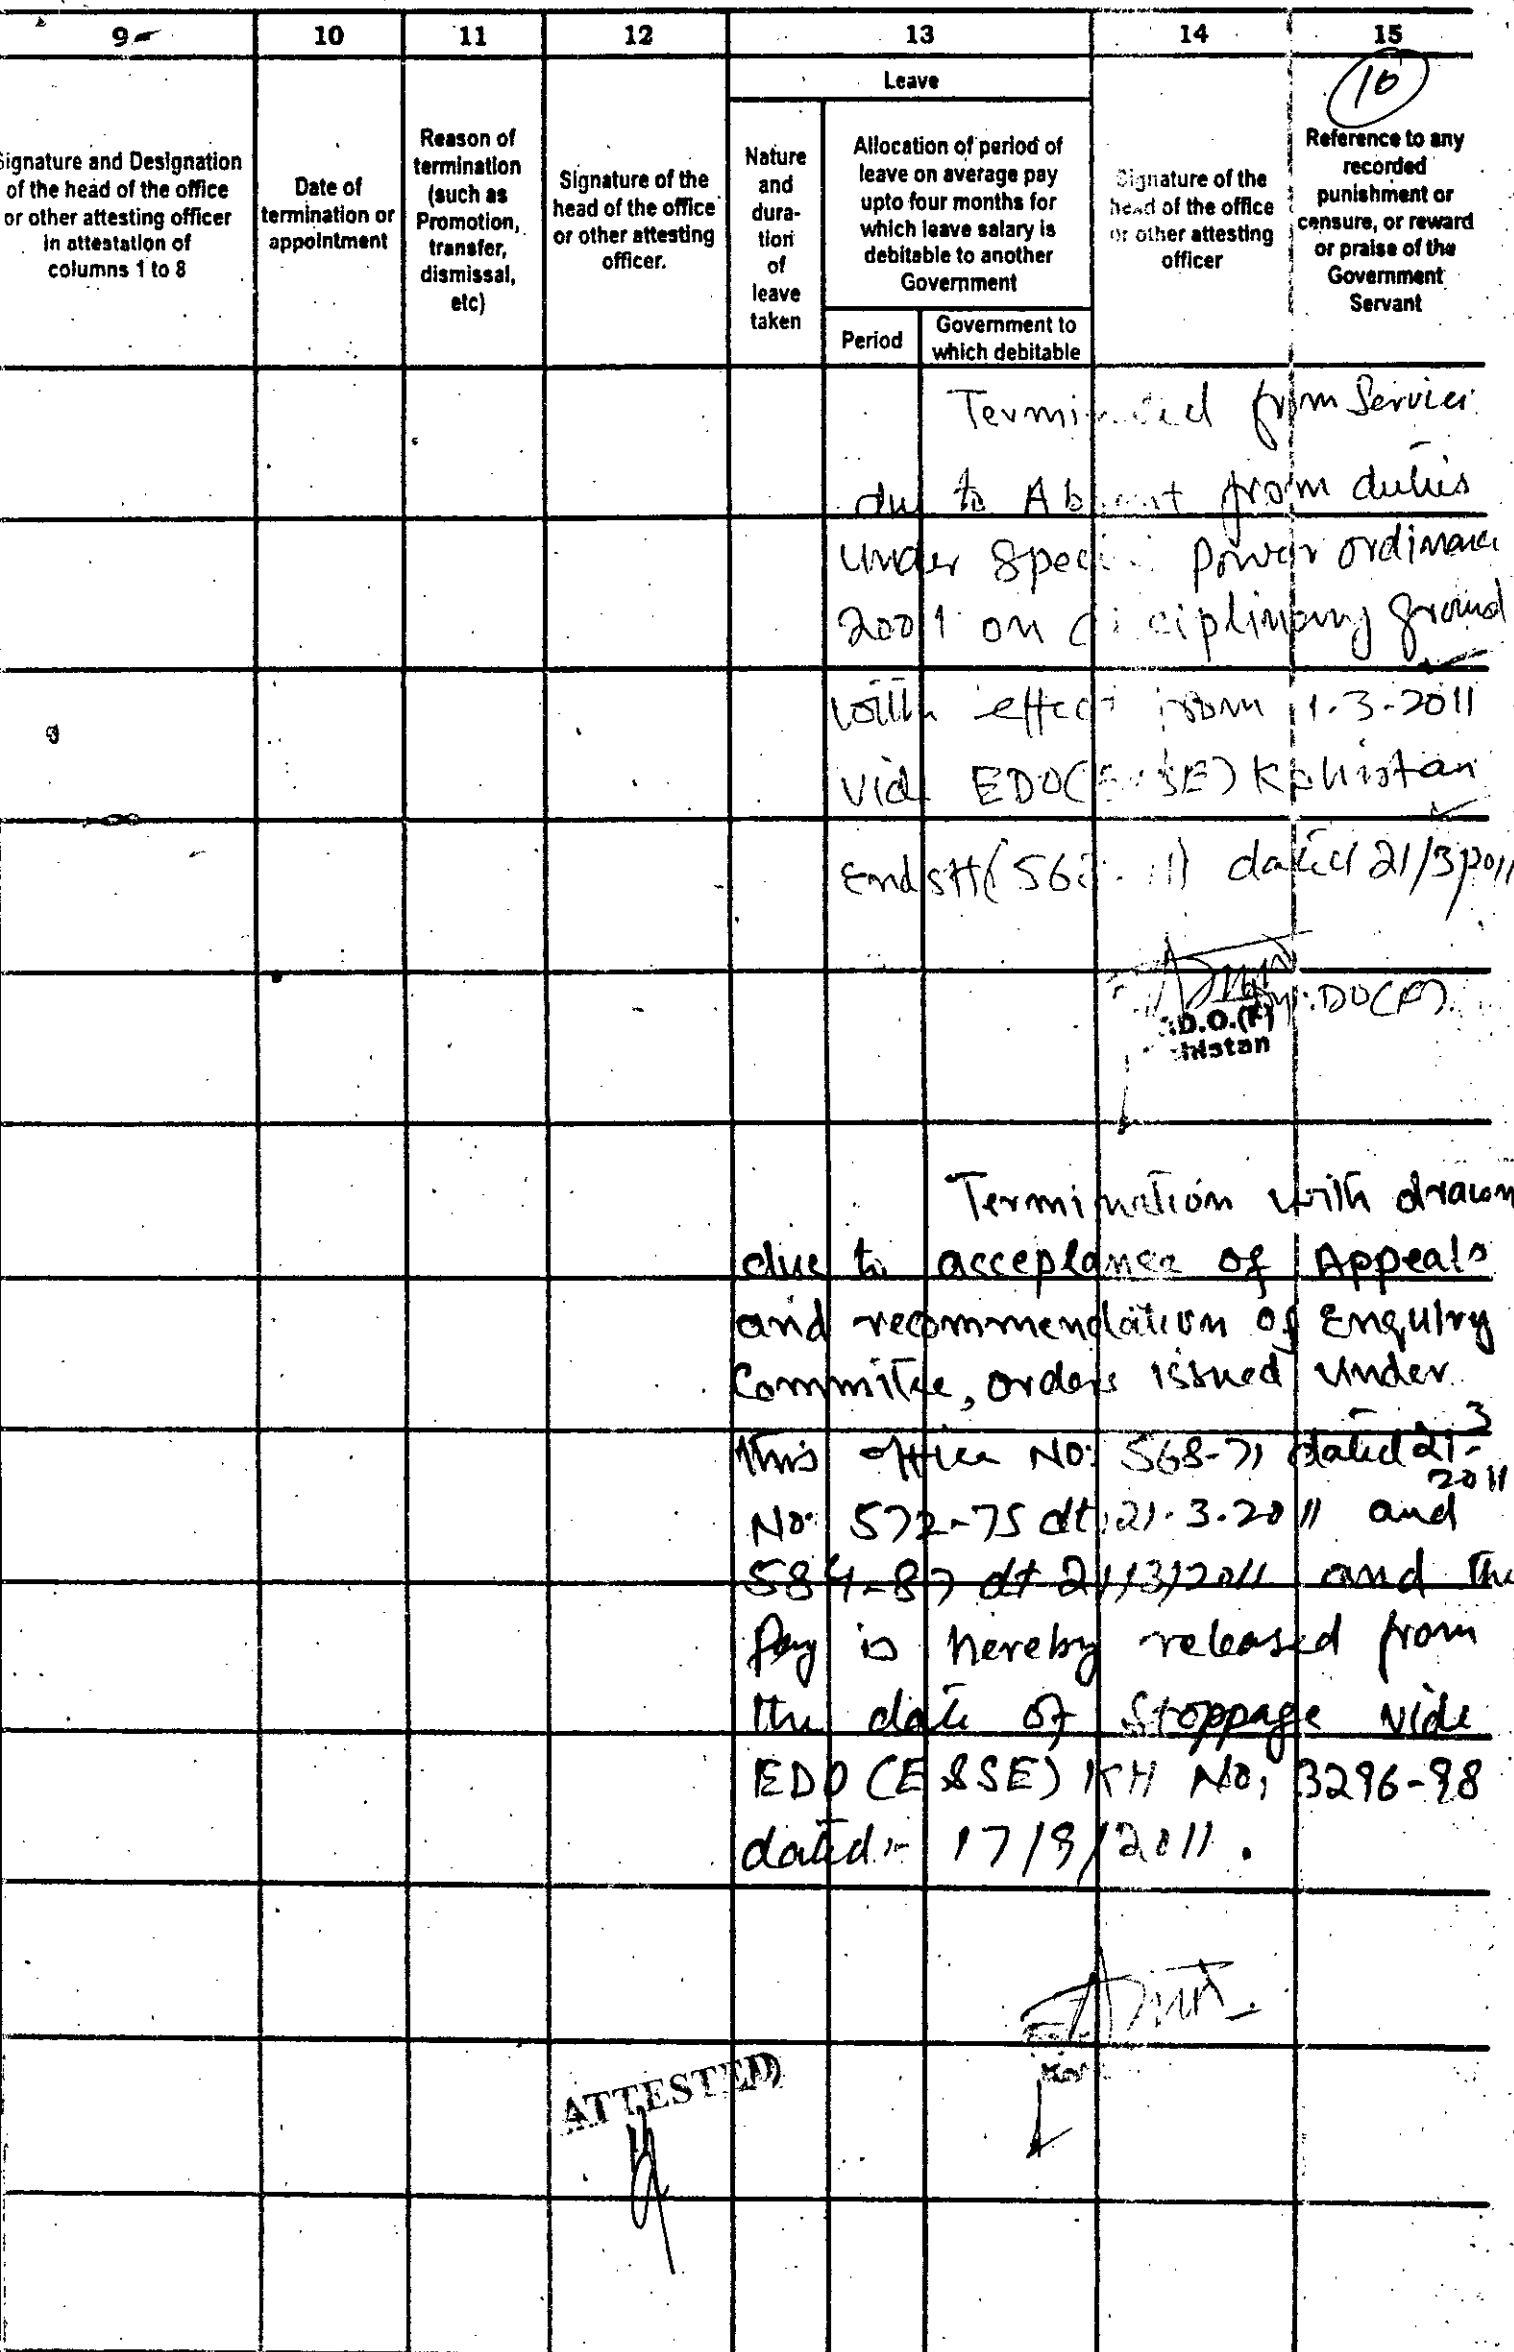 9
10
11
12
13
14
15
10
Signature and Designation
of the head of the office
or other attesting officer
in attestation of
columns 1 to 8
Date of
termination or
appointment
Reason of
termination
(such as
Promotion,
transfer,
dismissal,
etc)
Signature of the
head of the office
or other attesting
officer.
Leave
Nature
and
dura-
tion
of
leave
taken
Allocation of period of
leave on average pay
upto four months for
which leave salary is
debitable to another
Government
Period
Government to
which debitable
Signature of the
head of the office
or other attesting
officer
Reference to any
recorded
punishment or
censure, or reward
or praise of the
Government
Servant
Terminated from Service
due to Absent from duties
under Special Power ordinance
2001 on disciplinary ground
with effect from 1.3-2011
vide EDO(E&SE) Kohistan
Endstt( dated 21/3/2011
DO(F)
D.O.(F)
histan
Termination with drawn
due to acceptance of Appeals
and recommendation of Enquiry
Committee, orders issued under
this office No: 568-71 dated 21-3-2011
No: 572-75 dt: 21.3.2011 and
584-87 dt 21/3/2011 and the
Pay is hereby released from
the date of Stoppage vide
EDO (E&SE) KH No; 3296-98
dated:- 17/9/2011.
ATTESTED